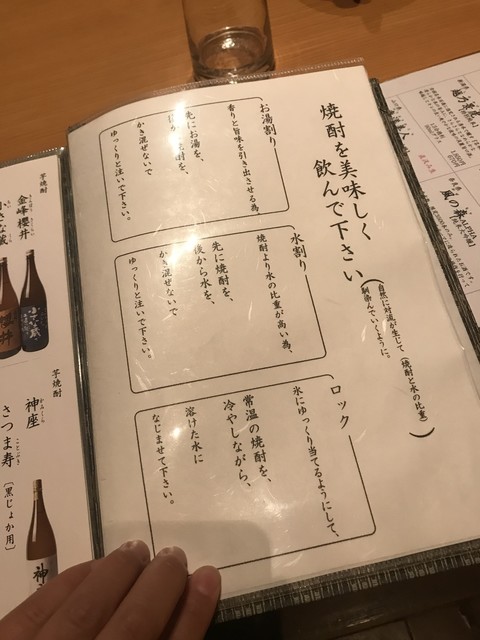 焼酎を美味しく
飲んで下さい
(自然に対流が生じて、(焼酎と水の比重)
馴染んでいくように。)
お湯割り
香りと旨味を引き出させる為、
先にお湯を、
後から焼酎を、
かき混ぜないで
ゆっくりと注いで下さい。
水割り
焼酎より水の比重が高い為、
先に焼酎を、
後から水を、
かき混ぜないで
ゆっくりと注いで下さい。
ロック
氷にゆっくり当てるようにして、
常温の焼酎を、
冷やしながら、
溶けた水に
なじませて下さい。
芋焼酎
金峰櫻井
芋焼酎
神座
かみくら
さつま寿
ことぶき
〔黒じょか用〕